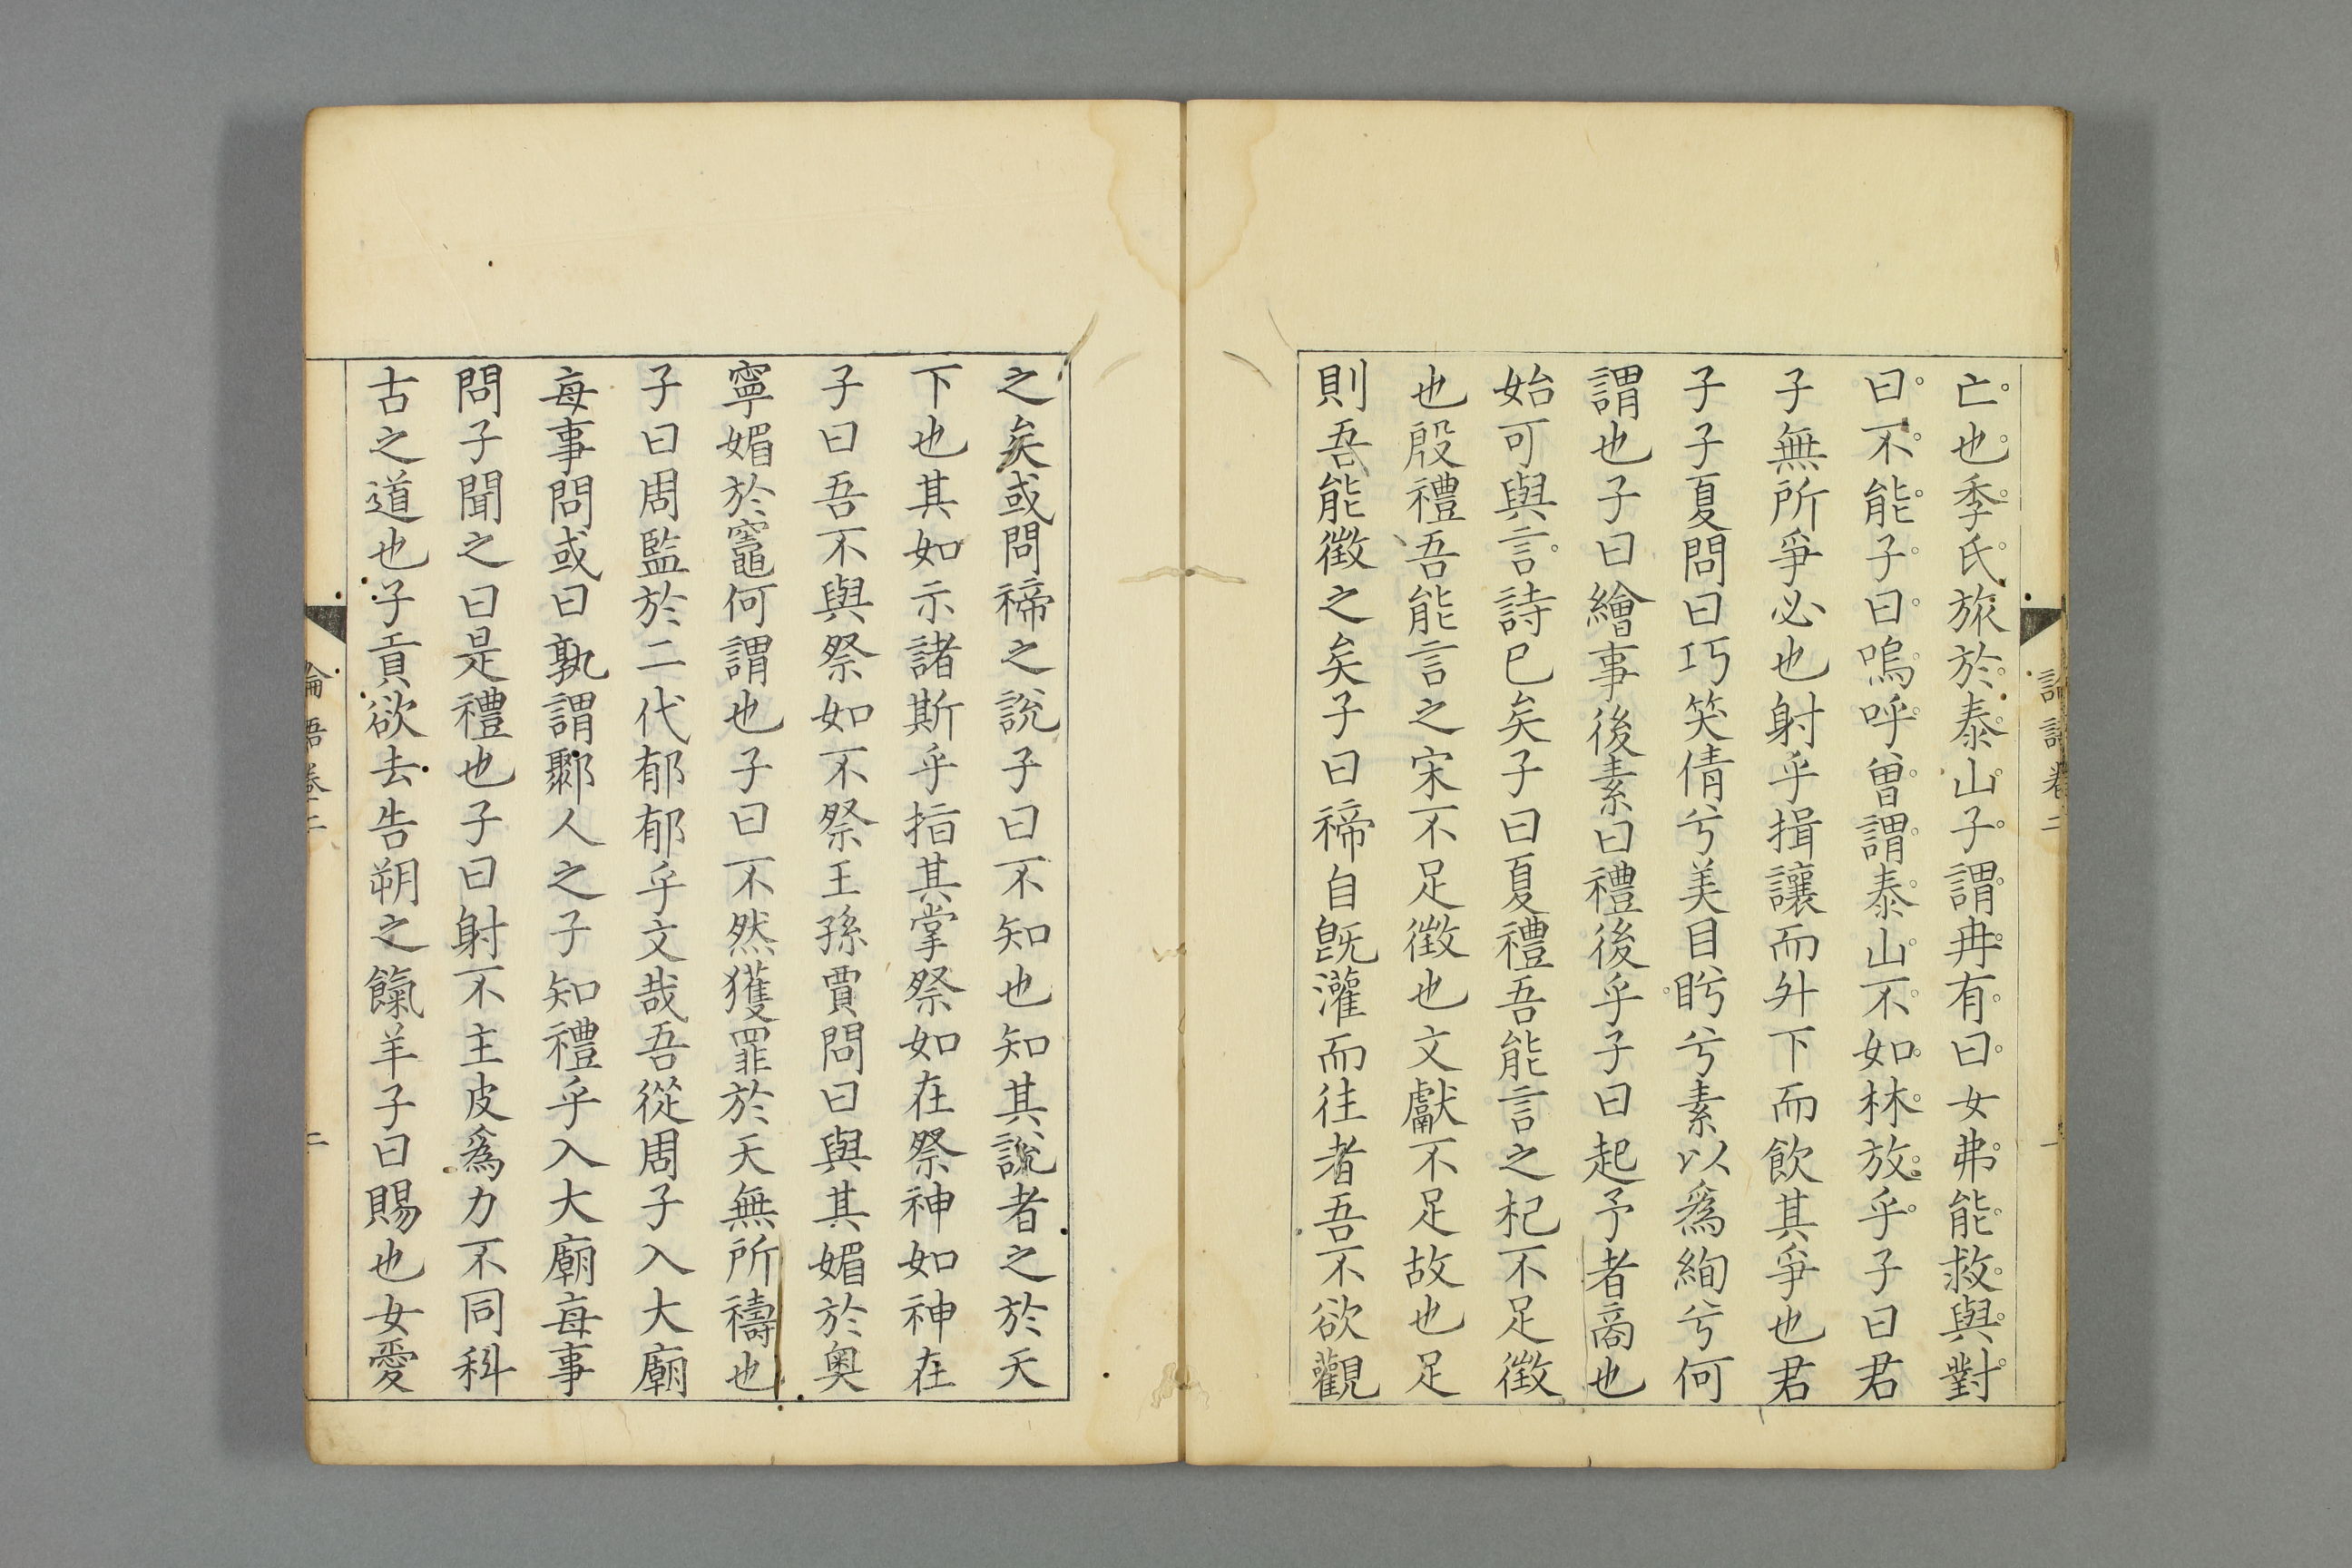 論語卷二 一
亡也季氏旅於泰山子謂冉有曰女弗能救與對
曰不能子曰嗚呼曾謂泰山不如林放乎子曰君
子無所爭必也射乎揖讓而升下而飲其爭也君
子子夏問曰巧笑倩兮美目盻兮素以爲絢兮何
謂也子曰繪事後素曰禮後乎子曰起予者商也
始可與言詩已矣子曰夏禮吾能言之杞不足徵
也殷禮吾能言之宋不足徵也文獻不足故也足
則吾能徵之矣子曰禘自旣灌而往者吾不欲觀
之矣或問禘之說子曰不知也知其說者之於天
下也其如示諸斯乎指其掌祭如在祭神如神在
子曰吾不與祭如不祭王孫賈問曰與其媚於奧
寧媚於竈何謂也子曰不然獲罪於天無所禱也
子曰周監於二代郁郁乎文哉吾從周子入大廟
每事問或曰孰謂鄹人之子知禮乎入大廟每事
問子聞之曰是禮也子曰射不主皮爲力不同科
古之道也子貢欲去告朔之餼羊子曰賜也女愛
論語卷二 二